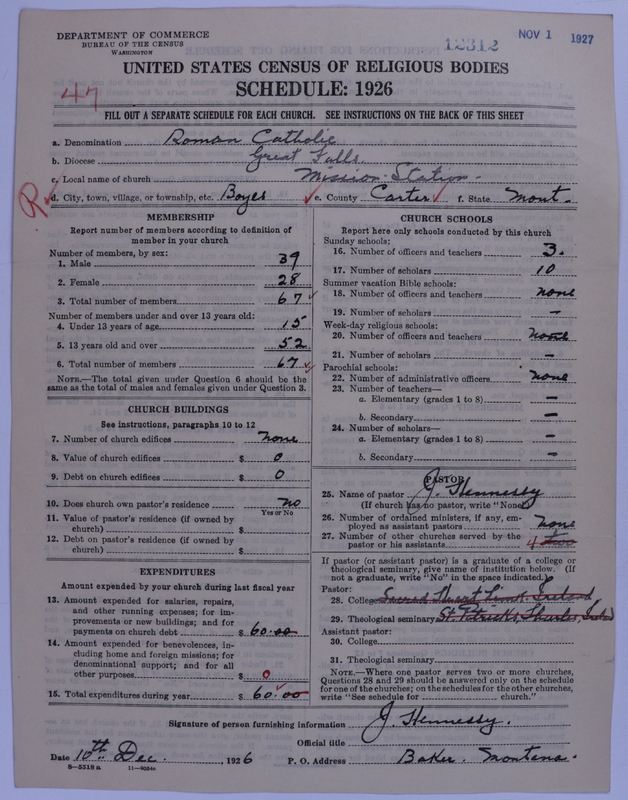 DEPARTMENT OF COMMERCE
BUREAU OF THE CENSUS
WASHINGTON
12312
NOV 1 1927
UNITED STATES CENSUS OF RELIGIOUS BODIES
SCHEDULE: 1926
47
FILL OUT A SEPARATE SCHEDULE FOR EACH CHURCH. SEE INSTRUCTIONS ON THE BACK OF THIS SHEET
a. Denomination Roman Catholic
b. Diocese Great Falls
c. Local name of church Mission Station
R d. City, town, village, or township, etc. Boyes e. County Carter f. State Mont.
MEMBERSHIP
Report number of members according to definition of
member in your church
Number of members, by sex:
1. Male 39
2. Female 28
3. Total number of members 67
Number of members under and over 13 years old:
4. Under 13 years of age 15
5. 13 years old and over 52
6. Total number of members 67
NOTE.—The total given under Question 6 should be the
same as the total of males and females given under Question 3.
CHURCH BUILDINGS
See instructions, paragraphs 10 to 12
7. Number of church edifices none
8. Value of church edifices $ 0
9. Debt on church edifices $ 0
10. Does church own pastor's residence no
Yes or No
11. Value of pastor's residence (if owned by
church) $
12. Debt on pastor's residence (if owned by
church) $
EXPENDITURES
Amount expended by your church during last fiscal year
13. Amount expended for salaries, repairs,
and other running expenses; for im-
provements or new buildings; and for
payments on church debt $ 60.00
14. Amount expended for benevolences, in-
cluding home and foreign missions; for
denominational support; and for all
other purposes $ 0
15. Total expenditures during year $ 60.00
CHURCH SCHOOLS
Report here only schools conducted by this church
Sunday schools:
16. Number of officers and teachers 3.
17. Number of scholars 10
Summer vacation Bible schools:
18. Number of officers and teachers none
19. Number of scholars —
Week-day religious schools:
20. Number of officers and teachers none
21. Number of scholars —
Parochial schools:
22. Number of administrative officers none
23. Number of teachers—
a. Elementary (grades 1 to 8) —
b. Secondary —
24. Number of scholars—
a. Elementary (grades 1 to 8) —
b. Secondary —
PASTOR
25. Name of pastor J. Hennessy
(If church has no pastor, write "None")
26. Number of ordained ministers, if any, em-
ployed as assistant pastors none
27. Number of other churches served by the
pastor or his assistants 4 two
If pastor (or assistant pastor) is a graduate of a college or
theological seminary, give name of institution below. (If
not a graduate, write "No" in the space indicated.)
Pastor:
28. College Sacred Heart Ireland
29. Theological seminary St. Patricks, Thurles,
Assistant pastor:
30. College
31. Theological seminary
NOTE.—Where one pastor serves two or more churches,
Questions 28 and 29 should be answered only on the schedule
for one of the churches; on the schedules for the other churches,
write "See schedule for church."
Signature of person furnishing information J. Hennessy.
Official title
Date 10th Dec., 1926 P. O. Address Baker. Montana.
8—5518 a